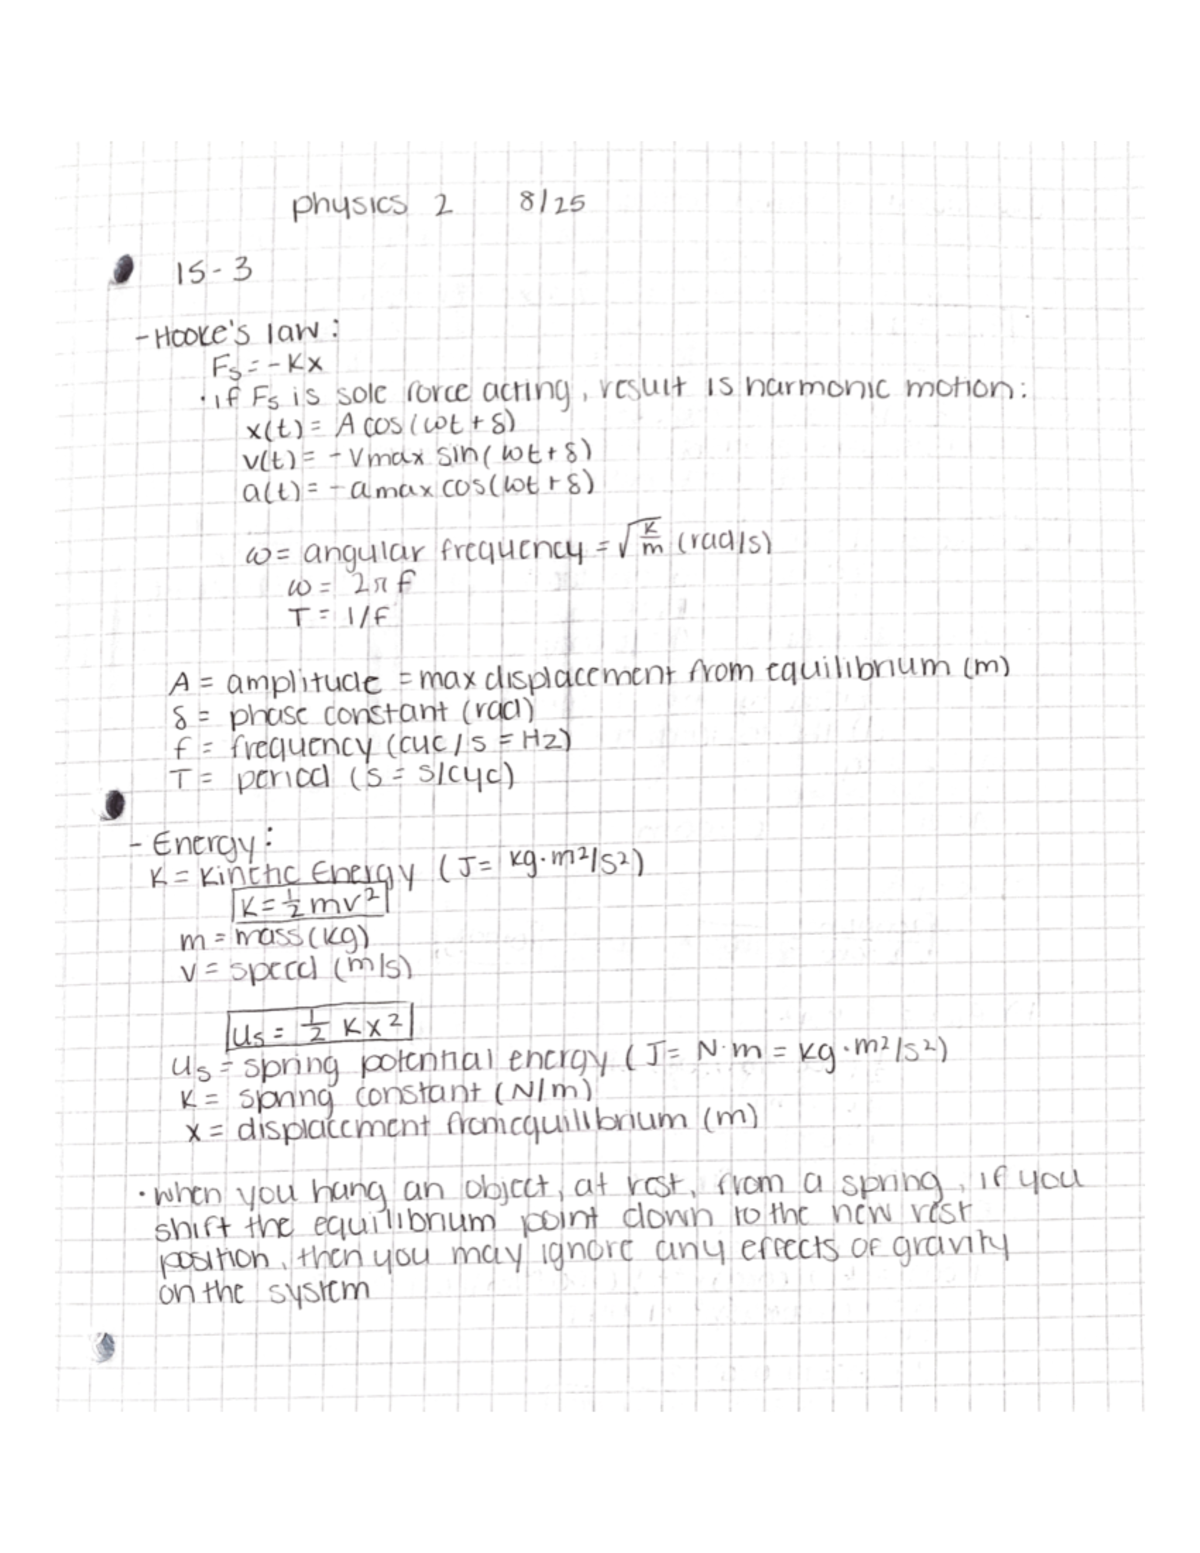 physics 2 8/25
15-3
- Hooke's law:
Fs = -Kx
· if Fs is sole force acting, result is harmonic motion:
x(t) = A cos(ωt + δ)
v(t) = -Vmax sin(ωt + δ)
a(t) = -amax cos(ωt + δ)
ω = angular frequency = √(K/m) (rad/s)
ω = 2πf
T = 1/f
A = amplitude = max displacement from equilibrium (m)
δ = phase constant (rad)
f = frequency (cyc/s = Hz)
T = period (s = s/cyc)
- Energy:
K = Kinetic Energy (J = kg·m²/s²)
K = ½mv²
m = mass (kg)
v = speed (m/s)
Us = ½ Kx²
Us = spring potential energy (J = N·m = kg·m²/s²)
K = spring constant (N/m)
x = displacement from equillibrium (m)
· when you hang an object, at rest, from a spring, if you
shift the equilibrium point down to the new rest
position, then you may ignore any effects of gravity
on the system